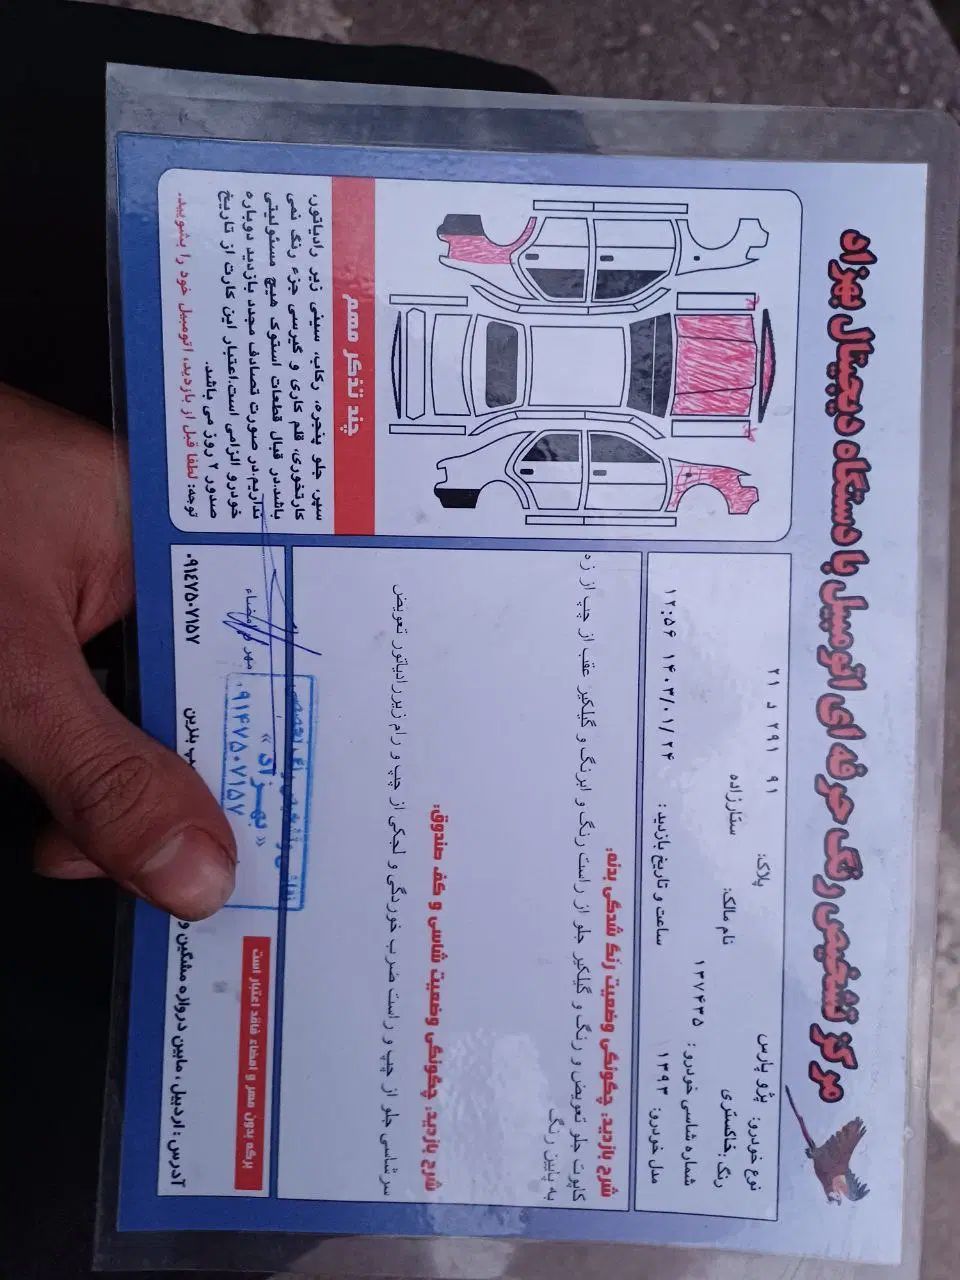 مرکز تشخیص رنگ حرفه ای اتومبیل با دستگاه دیجیتال بهزاد
نوع خودرو: پژو پارس
پلاک: ۹۱ ۲۹۱ د ۲۱
رنگ: خاکستری
نام مالک: ستارزاده
شماره شاسی خودرو: ۱۳۷۴۳۵
مدل خودرو: ۱۳۹۳
ساعت و تاریخ بازدید: ۱۴۰۳/۰۱/۲۴ ۱۲:۵۶
شرح بازدید: چگونگی وضعیت رنگ شدگی بدنه:
کاپوت جلو تعویض و رنگ و گیلگیر جلو از راست رنگ و ابرنگ و گیلگیر عقب از چپ از زه
به پایین رنگ
شرح بازدید: چگونگی وضعیت شاسی و کف صندوق:
سرشاسی جلو از چپ و راست ضرب خوردگی و لچکی از چپ و رام زیررادیاتور تعویض
چند تذکر مهم
سپر، جلو پنجره، رکاب، سینی زیر رادیاتور،
کارتخوری، قلم کاری و گیرسی جزء رنگ نمی
باشد.در قبال قطعات استوک هیچ مسئولیتی
نداریم.در صورت تصادف مجدد بازدید دوباره
خودرو الزامی است.اعتبار این کارت از تاریخ
صدور ۲ روز می باشد.
توجه: لطفا قبل از بازدید، اتومبیل خود را بشویید.
برگه بدون مهر و امضاء فاقد اعتبار است
مهر و امضاء
« بهزاد »
۰۹۱۴۷۵۰۷۱۵۷
آدرس : اردبیل ، مابین دروازه مشگین و
پ بنزین
۰۹۱۴۷۵۰۷۱۵۷